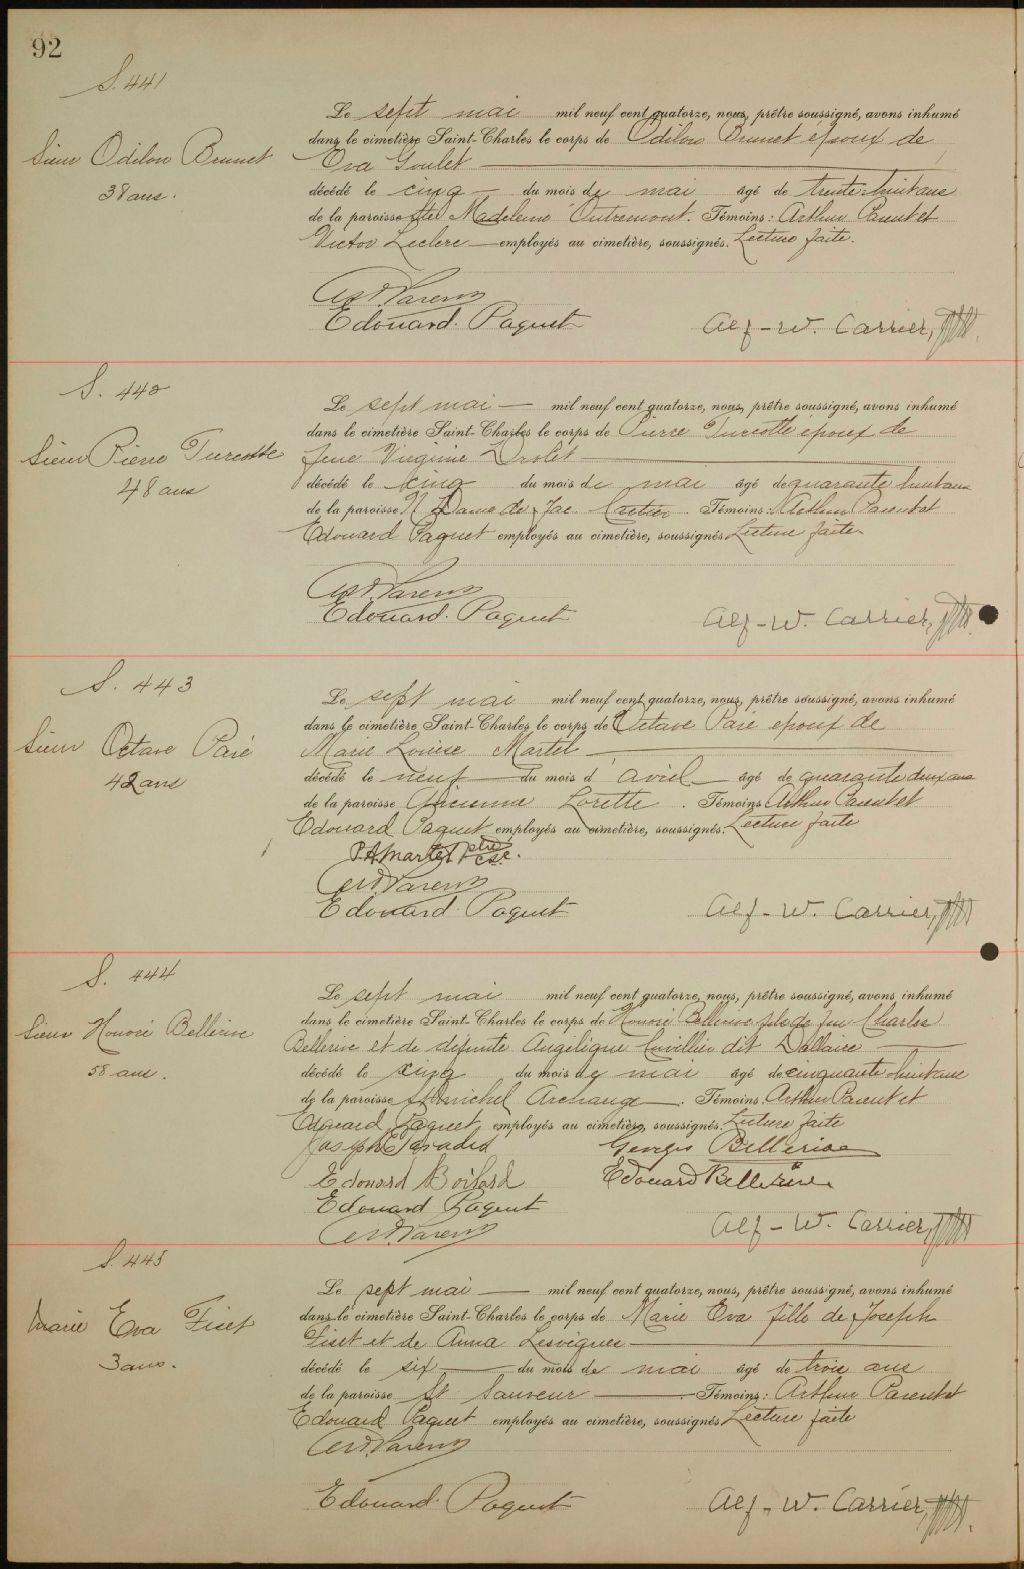 92
S. 441
Sieur Odilon Brunet
38 ans.
Le sept mai mil neuf cent quatorze, nous, prêtre soussigné, avons inhumé
dans le cimetière Saint-Charles le corps de Odilon Brunet époux de
Eva Goulet
décédé le cinq du mois de mai âgé de trente-huit ans
de la paroisse Ste Madeleine Outremont. Témoins: Arthur Parent et
Victor Leclerc employés au cimetière, soussignés. Lecture faite.
Art. Parent
Edouard Paquet Alf-W. Carrier, ptre.
S. 442
Sieur Pierre Turcotte
48 ans
Le sept mai mil neuf cent quatorze, nous, prêtre soussigné, avons inhumé
dans le cimetière Saint-Charles le corps de Pierre Turcotte époux de
feue Virginie Drolet
décédé le cinq du mois de mai âgé de quarante huit ans
de la paroisse N. Dame de Jac. Cartier. Témoins: Arthur Parent et
Edouard Paquet employés au cimetière, soussignés Lecture faite
Art. Parent
Edouard Paquet Alf-W. Carrier, ptre.
S. 443
Sieur Octave Paré
42 ans
Le sept mai mil neuf cent quatorze, nous, prêtre soussigné, avons inhumé
dans le cimetière Saint-Charles le corps de Octave Paré époux de
Marie Louise Martel
décédé le neuf du mois d'avril âgé de quarante deux ans
de la paroisse Ancienne Lorette. Témoins Arthur Parent et
Edouard Paquet employés au cimetière, soussignés. Lecture faite
P.A. Martel ptre
Art. Parent
Edouard Paquet Alf-W. Carrier, ptre
S. 444
Sieur Honoré Bellerive
58 ans.
Le sept mai mil neuf cent quatorze, nous, prêtre soussigné, avons inhumé
dans le cimetière Saint-Charles le corps de Honoré Bellerive fils de feu Charles
Bellerive et de defunte Angélique Cuvillier dit Dallaire
décédé le cinq du mois de mai âgé de cinquante huit ans
de la paroisse St Michel Archange. Témoins. Arthur Parent et
Edouard Paquet employés au cimetière, soussignés. Lecture faite
Joseph Paradis Georges Bellerive
Edouard Boilard Edouard Bellerive
Edouard Paquet
Art. Parent Alf-W. Carrier, ptre
S. 445
Marie Eva Fiset
3 ans.
Le sept mai mil neuf cent quatorze, nous, prêtre soussigné, avons inhumé
dans le cimetière Saint-Charles le corps de Marie Eva fille de Joseph
Fiset et de Anna Lesvègues
décédé le six du mois de mai âgé de trois ans
de la paroisse St Sauveur. Témoins: Arthur Parent et
Edouard Paquet employés au cimetière, soussignés Lecture faite
Art. Parent
Edouard Paquet Alf-W. Carrier, ptre.